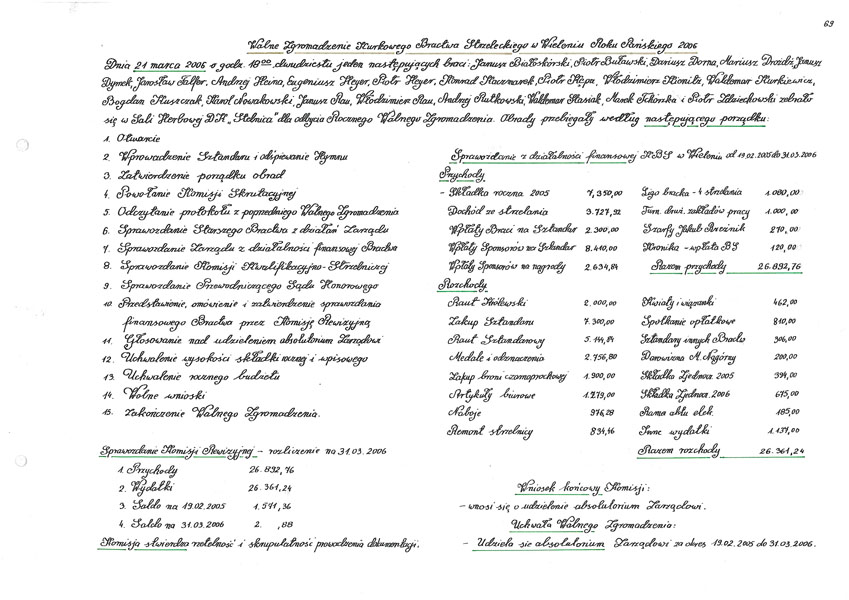 69
Walne Zgromadzenie Kurkowego Bractwa Strzeleckiego w Wieluniu Roku Pańskiego 2006
Dnia 21 marca 2006 o godz. 18⁰⁰ dwudziestu jeden następujących braci: Janusz Białoskórski, Piotr Buławski, Dariusz Dorna, Mariusz Drożdż, Janusz
Dymek, Jarosław Falfer, Andrzej Heina, Eugeniusz Heyer, Piotr Heyer, Konrad Kaczmarek, Piotr Kępa, Włodzimierz Kionitz, Waldemar Kurkiewicz,
Bogdan Kuszczak, Karol Nowakowski, Janusz Rau, Włodzimierz Rau, Andrzej Rutkowski, Waldemar Stasiak, Marek Tchórzka i Piotr Zdziechowski zebrało
się w Sali Herbowej D.H. "Stolnica" dla odbycia Rocznego Walnego Zgromadzenia. Obrady przebiegały według następującego porządku:
1. Otwarcie
2. Wprowadzenie Sztandaru i odśpiewanie Hymnu
3. Zatwierdzenie porządku obrad
4. Powołanie Komisji Skrutacyjnej
5. Odczytanie protokołu z poprzedniego Walnego Zgromadzenia
6. Sprawozdanie Starszego Bractwa z działań Zarządu
7. Sprawozdanie Zarządu z działalności finansowej Bractwa
8. Sprawozdanie Komisji Kwalifikacyjno-Strzelniczej
9. Sprawozdanie Przewodniczącego Sądu Honorowego
10. Przedstawienie, omówienie i zatwierdzenie sprawozdania
finansowego Bractwa przez Komisję Rewizyjną
11. Głosowanie nad udzieleniem absolutorium Zarządowi
12. Uchwalenie wysokości składki rocznej i wpisowego
13. Uchwalenie rocznego budżetu
14. Wolne wnioski
15. Zakończenie Walnego Zgromadzenia.
Sprawozdanie Komisji Rewizyjnej - rozliczenie na 31.03.2006
1. Przychody 26.892,76
2. Wydatki 26.361,24
3. Saldo na 19.02.2005 1.571,36
4. Saldo na 31.03.2006 2. ,88
Komisja stwierdza rzetelność i skrupulatność prowadzenia dokumentacji.
Sprawozdanie z działalności finansowej KBS w Wieluniu od 19.02.2005 do 31.03.2006
Przychody
- Składka roczna 2005 7.350,00 Lego bracka - 4 strzelania 1.080,00
Dochód ze strzelania 3.727,92 Turn. druż. zakładów pracy 1.000,00
Wpłaty Braci na Sztandar 2.300,00 Szarfy Jakub 270,00
Wpłaty Sponsorów na Sztandar 8.410,00 Kronika - wpłata BS 120,00
Wpłaty Sponsorów na nagrody 2.634,84 Razem przychody 26.892,76
Rozchody
Raut Królewski 2.000,00 Kwiaty i wiązanki 462,00
Zakup Sztandaru 7.300,00 Spotkanie opłatkowe 810,00
Raut Sztandarowy 5.144,84 Sztandary innych Bractw 306,00
Medale i odznaczenia 2.756,80 Darowizna M. 200,00
Zakup broni czarnoprochowej 1.900,00 Składka Zjednocz. 2005 394,00
Artykuły biurowe 1.279,00 Składka Zjednocz. 2006 675,00
Naboje 976,28 Rama aktu elek. 185,00
Remont strzelnicy 834,46 Inne wydatki 1.137,00
Razem rozchody 26.361,24
Wniosek końcowy Komisji:
- wnosi się o udzielenie absolutorium Zarządowi.
Uchwała Walnego Zgromadzenia:
- Udziela się absolutorium Zarządowi za okres 19.02.2005 do 31.03.2006.